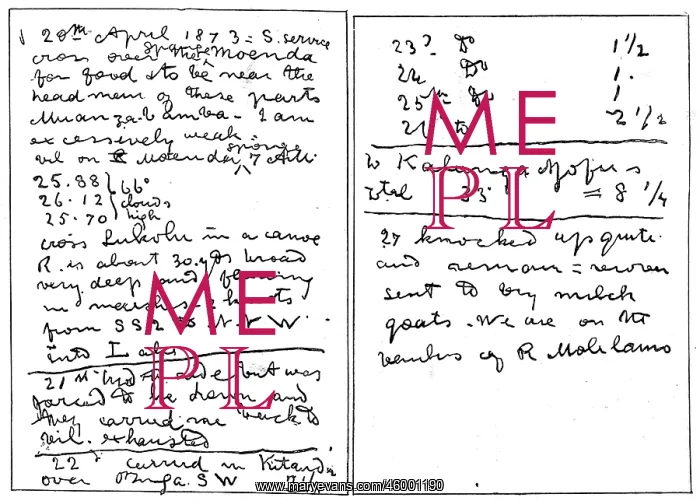 20th April 1873 = S. service
cross over the sponge Moenda
for food & to be near the
headmen of these parts
Muanzambamba - I am
excessively weak
vil on Moenda sponge 7 A.M.
25.88 66°
26.12 clouds
25.70 high
cross Lukolu in a canoe
R. is about 30 yds broad
very deep and flowing
in marshes 2 knots
from SSE to NNW
into Lake
21st tried to ride but was
forced to lie down and
they carried me back to
vil. exhausted
22 carried in Kitanda
over Buga. S W
23d Do 1 1/2
24 Do 1.
25th Do 1
26 Do 2 1/2
to
total 33 = 8 1/4
27 knocked up quite
and remain = recover
sent to buy milch
goats. We are on the
banks of R Molilamo
ME
PL
ME
PL
www.maryevans.com/46001190